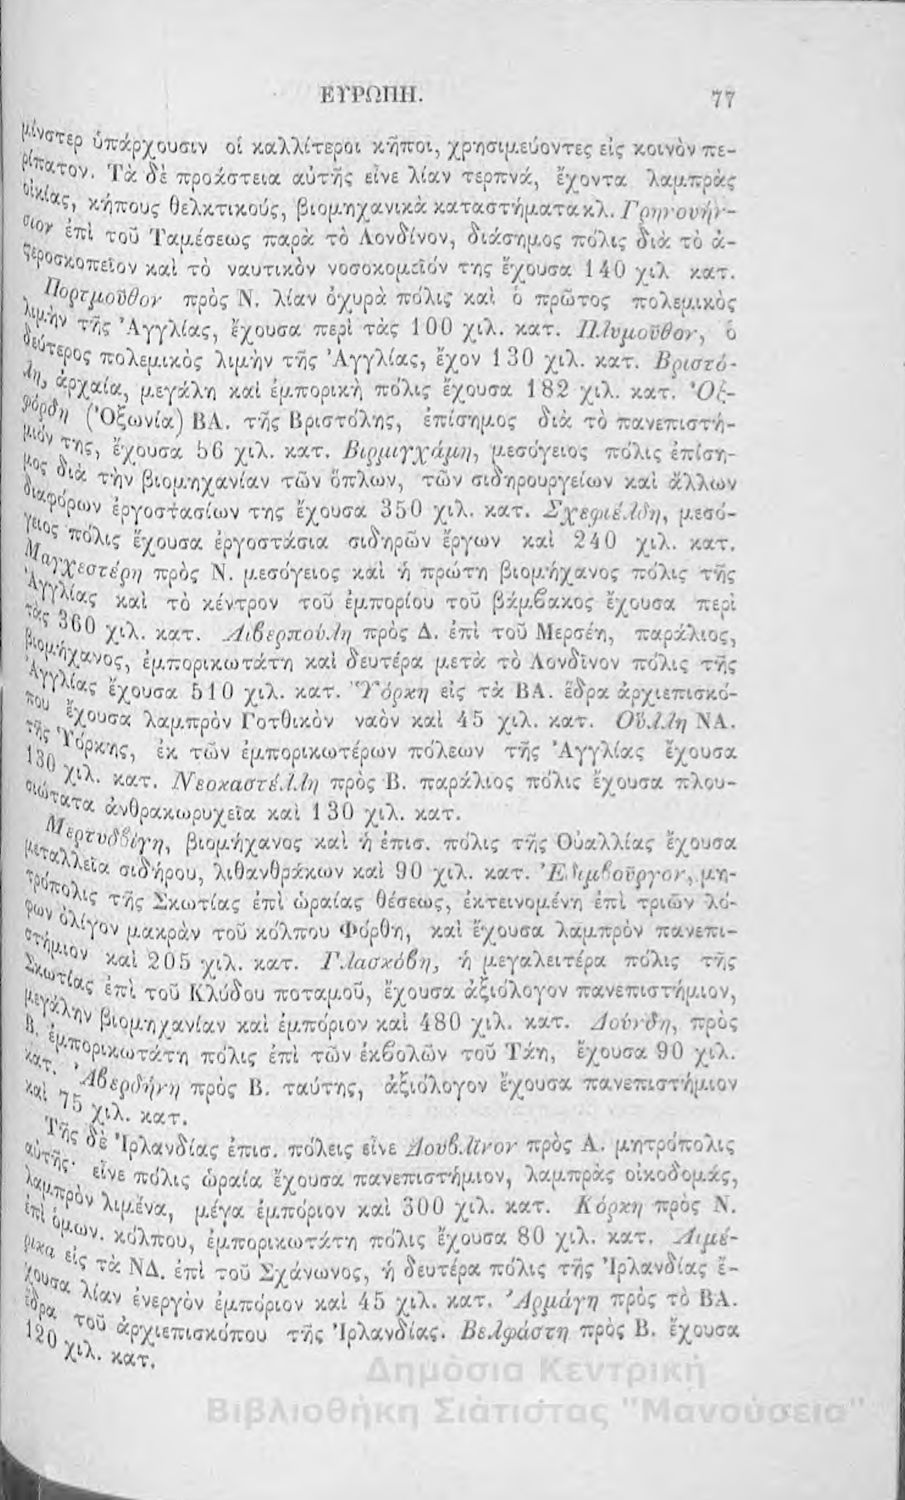 ΕΥΡΩΠΗ. 77
μίνστερ ὑπάρχουσιν οἱ καλλίτεροι κῆποι, χρησιμεύοντες εἰς κοινὸν πε-
ρίπατον. Τὰ δὲ προάστεια αὐτῆς εἶνε λίαν τερπνά, ἔχοντα λαμπρὰς
οἰκίας, κήπους θελκτικούς, βιομηχανικὰ καταστήματα κλ. Γρηνουήν-
σιον ἐπὶ τοῦ Ταμέσεως παρὰ τὸ Λονδίνον, διάσημος πόλις διὰ τὸ ἀ-
στεροσκοπεῖον καὶ τὸ ναυτικὸν νοσοκομεῖόν της ἔχουσα 140 χιλ κατ.
Πορτμοῦθον πρὸς Ν. λίαν ὀχυρὰ πόλις καὶ ὁ πρῶτος πολεμικὸς
λιμὴν τῆς Ἀγγλίας, ἔχουσα περὶ τὰς 100 χιλ. κατ. Πλυμοῦθον, ὁ
δεύτερος πολεμικὸς λιμὴν τῆς Ἀγγλίας, ἔχον 130 χιλ. κατ. Βριστό-
λη, ἀρχαία, μεγάλη καὶ ἐμπορικὴ πόλις ἔχουσα 182 χιλ. κατ. Ὀξ-
φόρδη (Ὀξωνία) ΒΑ. τῆς Βριστόλης, ἐπίσημος διὰ τὸ πανεπιστή-
μιόν της, ἔχουσα 56 χιλ. κατ. Βιρμιγχάμη, μεσόγειος πόλις ἐπίση-
μος διὰ τὴν βιομηχανίαν τῶν ὅπλων, τῶν σιδηρουργείων καὶ ἄλλων
διαφόρων ἐργοστασίων της ἔχουσα 350 χιλ. κατ. Σχεφιέλδη, μεσό-
γειος πόλις ἔχουσα ἐργοστάσια σιδηρῶν ἔργων καὶ 240 χιλ. κατ.
Μαγχεστέρη πρὸς Ν. μεσόγειος καὶ ἡ πρώτη βιομήχανος πόλις τῆς
Ἀγγλίας καὶ τὸ κέντρον τοῦ ἐμπορίου τοῦ βάμβακος ἔχουσα περὶ
τὰς 360 χιλ. κατ. Λιβερπούλη πρὸς Δ. ἐπὶ τοῦ Μερσέη, παράλιος,
βιομήχανος, ἐμπορικωτάτη καὶ δευτέρα μετὰ τὸ Λονδῖνον πόλις τῆς
Ἀγγλίας ἔχουσα 510 χιλ. κατ. Ὑόρκη εἰς τὰ ΒΑ. ἕδρα ἀρχιεπισκό-
που ἔχουσα λαμπρὸν Γοτθικὸν ναὸν καὶ 45 χιλ. κατ. Οὔλλη ΝΑ.
τῆς Ὑόρκης, ἐκ τῶν ἐμπορικωτέρων πόλεων τῆς Ἀγγλίας ἔχουσα
130 χιλ. κατ. Νεοκαστέλλη πρὸς Β. παράλιος πόλις ἔχουσα πλου-
σιώτατα ἀνθρακωρυχεῖα καὶ 130 χιλ. κατ.
Μερτυδβίγη, βιομήχανος καὶ ἡ ἐπισ. πόλις τῆς Οὐαλλίας ἔχουσα
μεταλλεῖα σιδήρου, λιθανθράκων καὶ 90 χιλ. κατ. Ἐδιμβοῦργον, μη-
τρόπολις τῆς Σκωτίας ἐπὶ ὡραίας θέσεως, ἐκτεινομένη ἐπὶ τριῶν λό-
φων ὀλίγον μακρὰν τοῦ κόλπου Φόρθη, καὶ ἔχουσα λαμπρὸν πανεπι-
στήμιον καὶ 205 χιλ. κατ. Γλασκόβη, ἡ μεγαλειτέρα πόλις τῆς
Σκωτίας ἐπὶ τοῦ Κλύδου ποταμοῦ, ἔχουσα ἀξιόλογον πανεπιστήμιον,
μεγάλην βιομηχανίαν καὶ ἐμπόριον καὶ 480 χιλ. κατ. Δούνδη, πρὸς
Β. ἐμπορικωτάτη πόλις ἐπὶ τῶν ἐκβολῶν τοῦ Τάη, ἔχουσα 90 χιλ.
κατ. Ἀβερδήνη πρὸς Β. ταύτης, ἀξιόλογον ἔχουσα πανεπιστήμιον
καὶ 75 χιλ. κατ.
Τῆς δὲ Ἰρλανδίας ἐπισ. πόλεις εἶνε Δουβλῖνον πρὸς Α. μητρόπολις
αὐτῆς. εἶνε πόλις ὡραία ἔχουσα πανεπιστήμιον, λαμπρὰς οἰκοδομάς,
λαμπρὸν λιμένα, μέγα ἐμπόριον καὶ 300 χιλ. κατ. Κόρκη πρὸς Ν.
ἐπὶ ὁμων. κόλπου, ἐμπορικωτάτη πόλις ἔχουσα 80 χιλ. κατ. Λιμέ-
ρικα εἰς τὰ ΝΔ. ἐπὶ τοῦ Σχάνωνος, ἡ δευτέρα πόλις τῆς Ἰρλανδίας ἔ-
χουσα λίαν ἐνεργὸν ἐμπόριον καὶ 45 χιλ. κατ. Ἀρμάγη πρὸς τὸ ΒΑ.
ἕδρα τοῦ ἀρχιεπισκόπου τῆς Ἰρλανδίας. Βελφάστη πρὸς Β. ἔχουσα
120 χιλ. κατ.
Δημόσια Κεντρική
Βιβλιοθήκη Σιάτιστας "Μανούσεια"